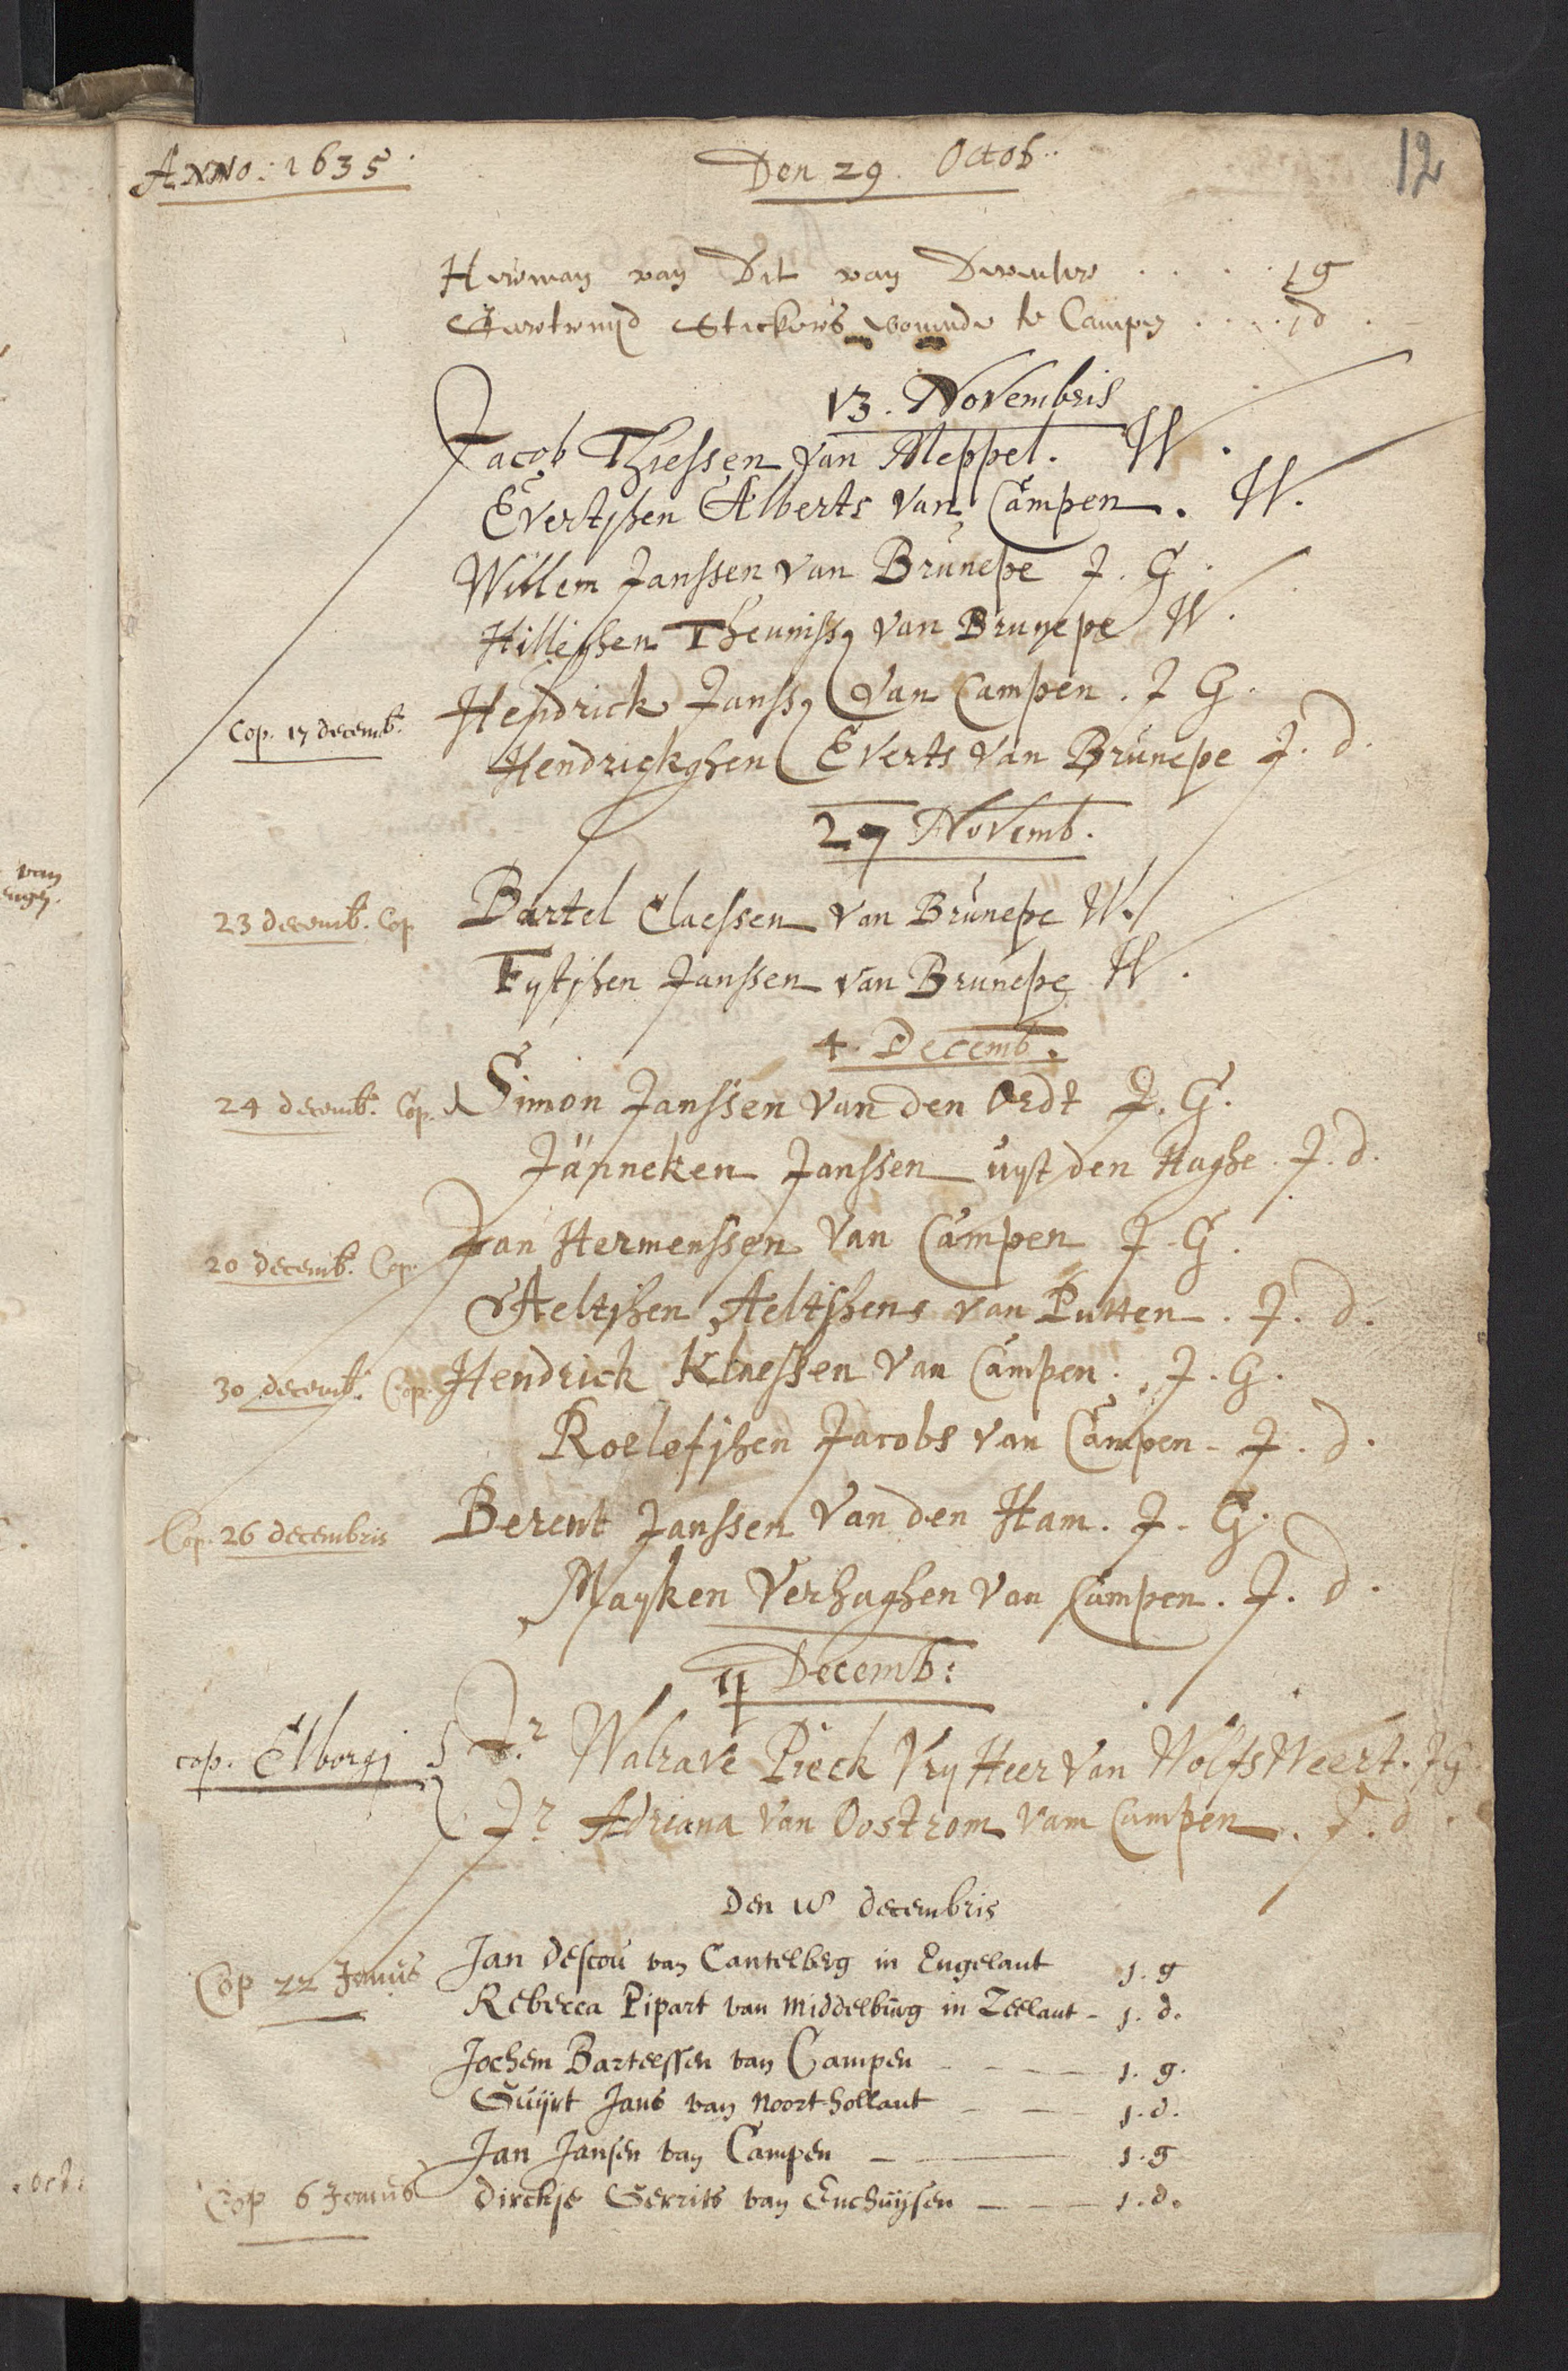 Anno: 1635. Den 29. Octob. 12
Herman van Dit van Deventer . . . . . J g
Geertruijd Stickers wonende te Campen . . . . J d
13. Novembris
Jacob Thiessen van Meppel. W.
Evertjhen Alberts van Campen. W.
Willem Janssen van Brunepe J. G.
Hilleghen Theuniss van Brunepe W.
Hendrick Janss van Campen. J G.
Cop. 17 decemb.
Hendrickghen Everts van Brunepe J. d.
27 Novemb.
23 decemb. Cop Bartel Claessen van Brunepe W.
Fytjhen Janssen van Brunepe W.
4. Decemb.
24 decemb. Cop. Simon Janssen van den Ordt J. G.
Janneken Janssen uyt den Haghe. J. d.
20 decemb. Cop. Jan Hermenssen van Campen J. G.
Aeltjhen Aeltjhens van Putten. J. d.
30 decemb. Cop. Hendrick Klaessen van Campen. J. G.
Roelofjhen Jacobs van Campen - J. d.
Cop. 26 decembris Berent Janssen van den Ham. J. G.
Mayken Verhaghen van Campen. J. d.
11 Decemb:
cop. Elborgj Jr Walrave Pieck Vry Heer van Wolfs Weert. J G
Jr Adriana van Oostrom vam Campen. J. d.
Den 18 decembris
Cop 22 Januś Jan Descou van Cantelberg in Engelant J. g
Rebecca Pipart van Middelburg in Zeelant - J. d.
Jochem Barteessen van Campen - - - J. g.
Guijrt Jans van Noort-hollant - - J. d.
Jan Jansen van Campen - - J. g
Cop 6 Januś Dirckje Gerrits van Enchuijsen - - J. d.
van
octb